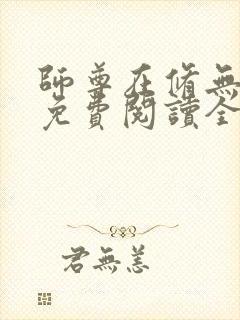 師尊在脩無
免費閱讀全
君無恙